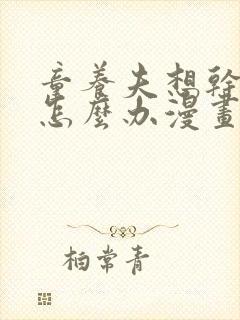 童養夫想幹
怎麼办漫畫
柏常青